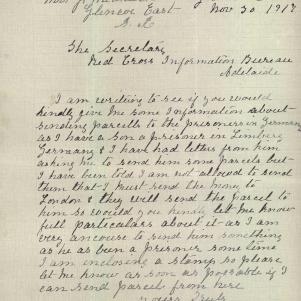 Glencoe East
Nov 30 1917
S. A
The Secretary
Red Cross Information Bureau
Adelaide
I am writing to see if you would
kindly give me some Information about
sending parcels to the prisoners in Germany
as I have a son a prisoner in Limburg
Germany & I have had letters from him
asking me to send him some parcels but
I have been told I am not allowed to send
them that I must send the money to
London & they will send the parcel to
him so would you kindly let me know
full particulars about it as I am
very to send him something
as he as been a prisoner some time
I am enclosing a stamp so please
let me know as soon as possible if I
can send parcel from here
yours Truly